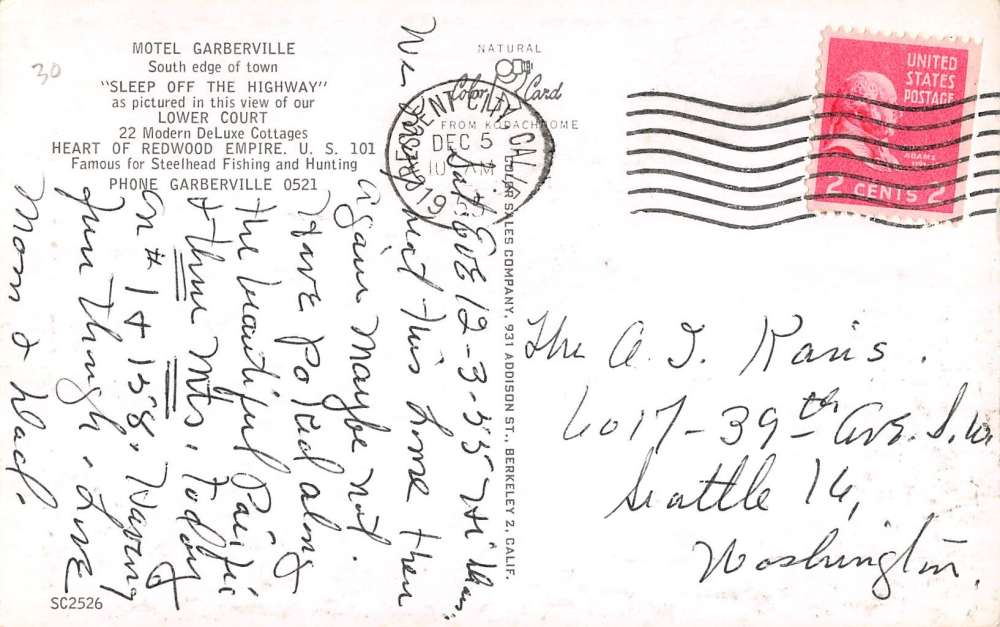 30
MOTEL GARBERVILLE
South edge of town
"SLEEP OFF THE HIGHWAY"
as pictured in this view of our
LOWER COURT
22 Modern DeLuxe Cottages
HEART OF REDWOOD EMPIRE. U. S. 101
Famous for Steelhead Fishing and Hunting
PHONE GARBERVILLE 0521
NATURAL
Color Card
FROM KODACHROME
CRESCENT CITY CALIF.
DEC 5
AM
19
UNITED
STATES
POSTAGE
ADAMS
2 CENTS 2
COLOR SALES COMPANY, 931 ADDISON ST., BERKELEY 2, CALIF.
Sat. Eve 12-3-55 Hi
We might this Home then
again maybe not.
Have Poked along
the beautiful Pacific
& thru Mts. Today
on #1 & 158. Having
fun though. Love
Mom & Dad.
The A. J.
6017-39th Ave. S.W
Seattle 16,
Washington.
SC2526